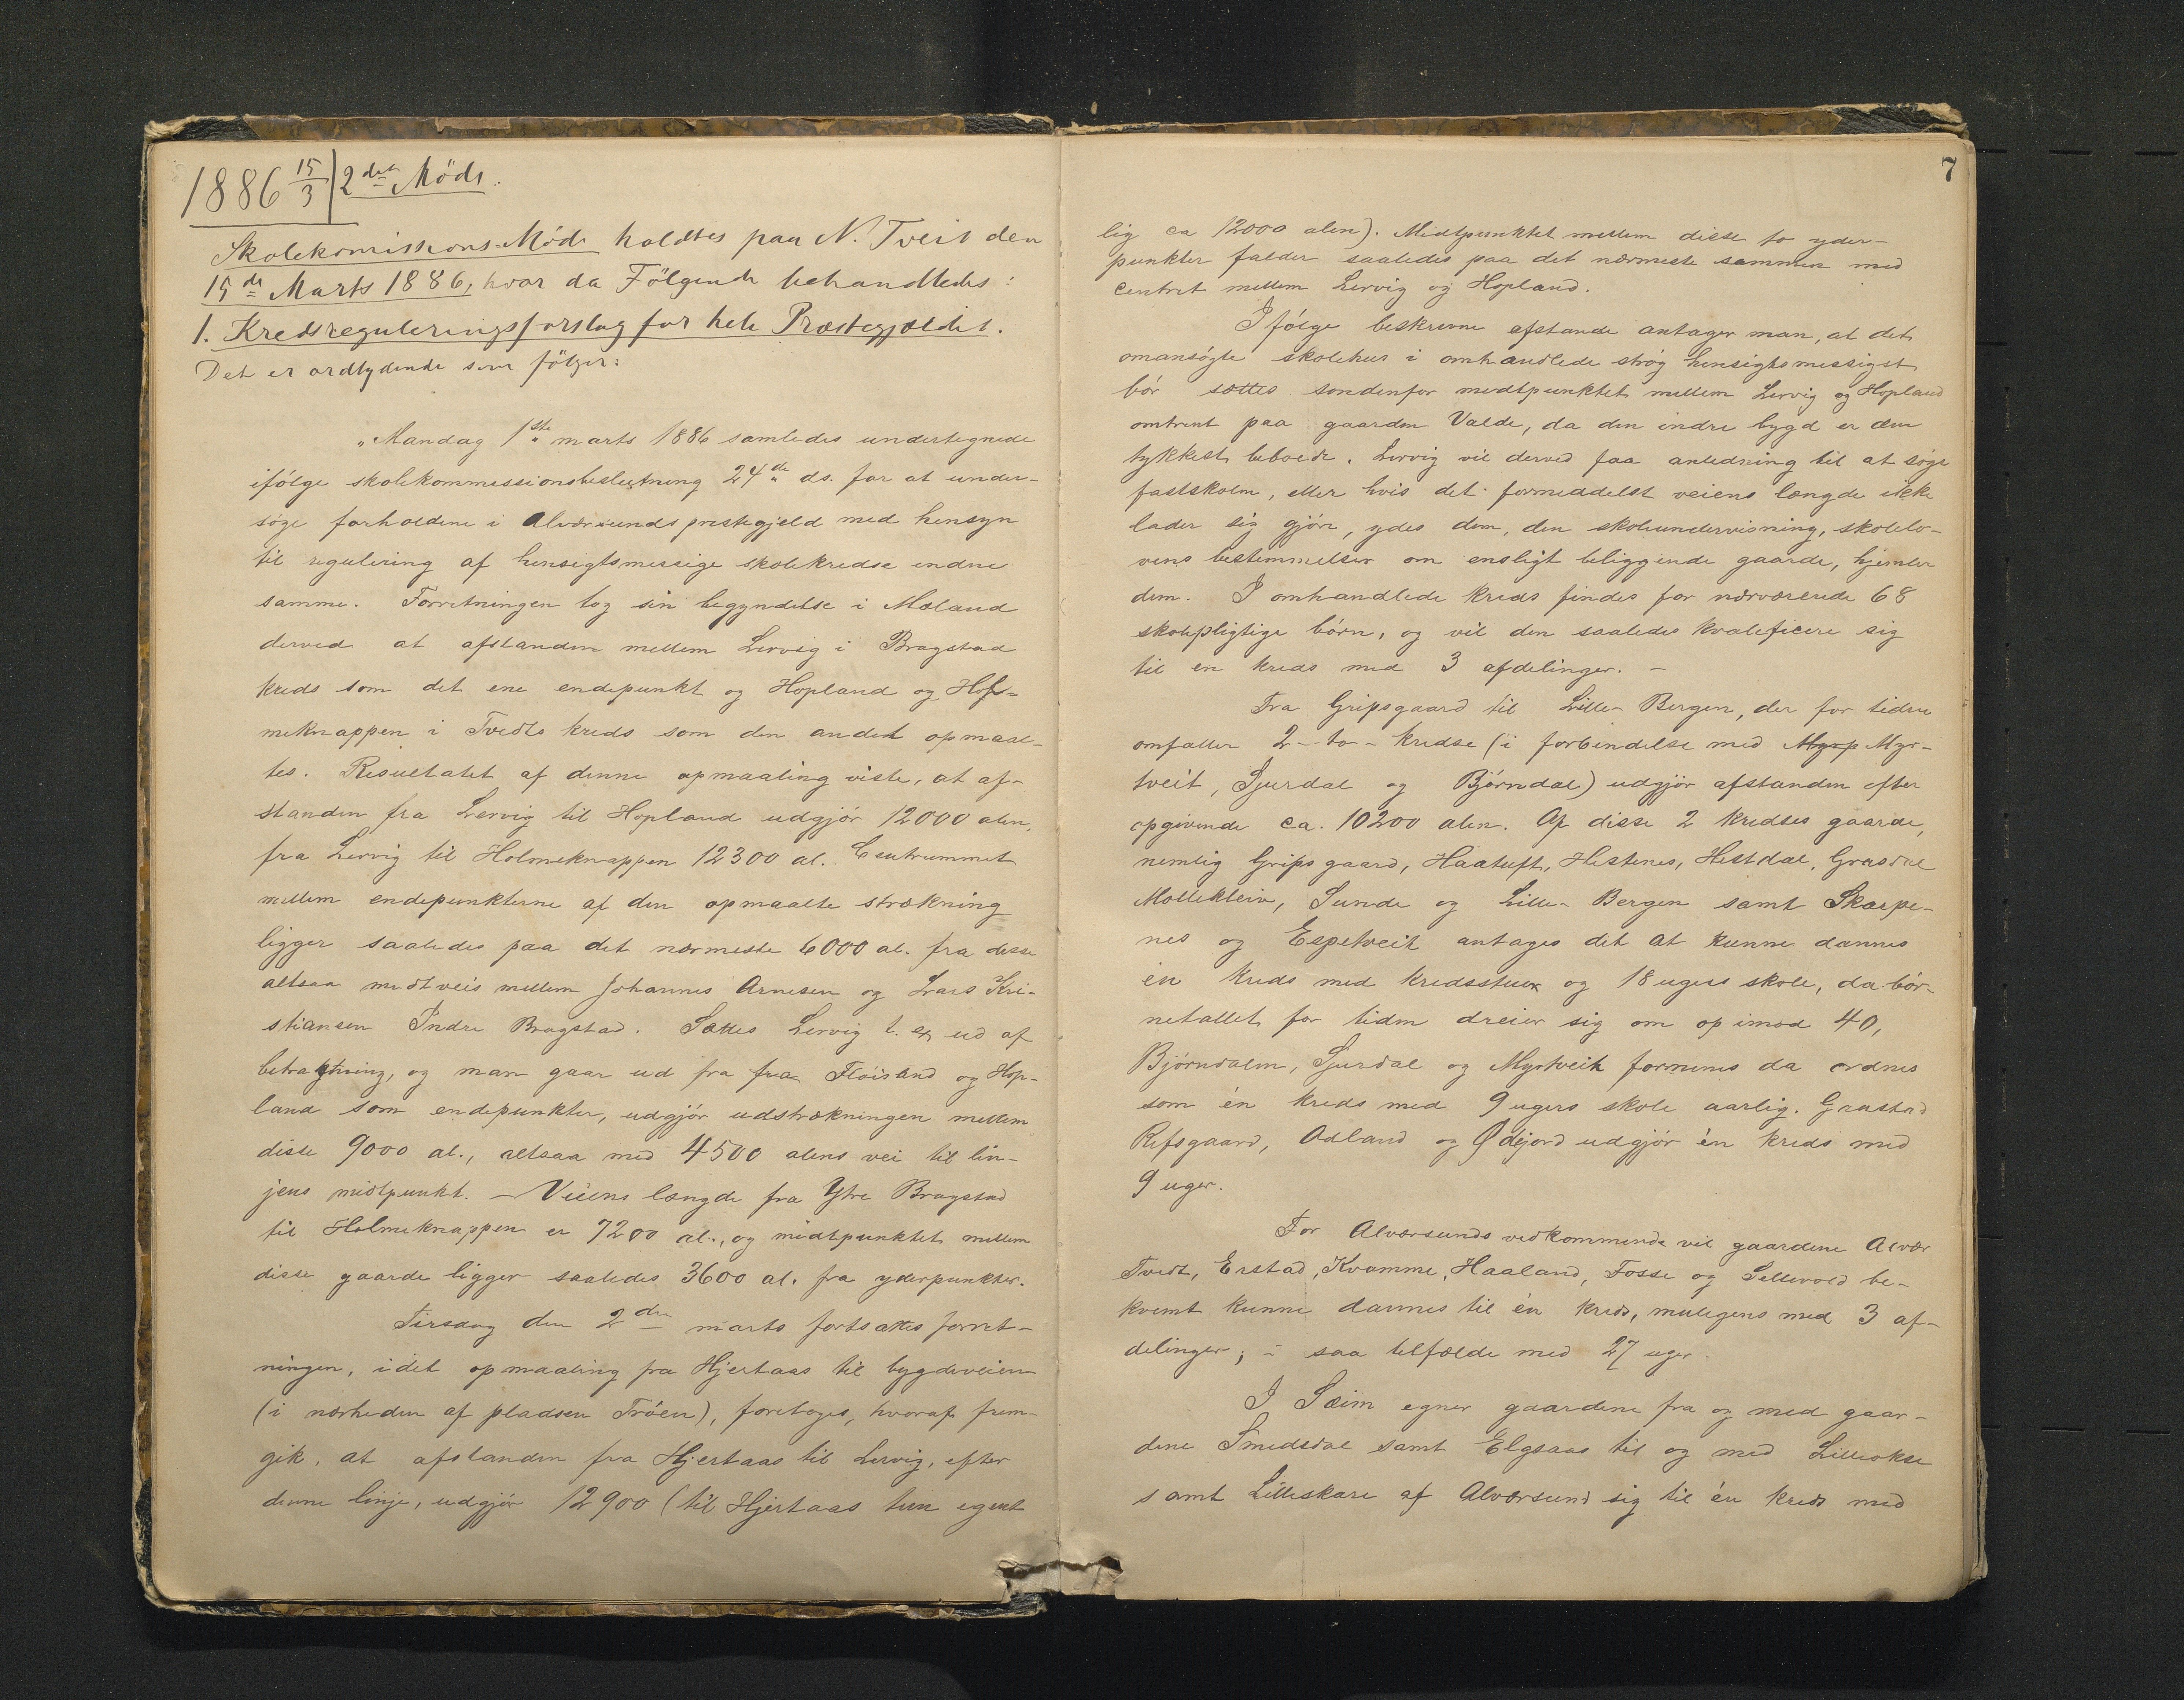 1886 15/3 2det Möde.
Skolekomissions-Möde holdtes paa N. Tveit den
15de Marts 1886, hvor da Fölgende behandledes:
1. Kredsreguleringsforslag for hele Præstegjældet.
Det er ordlydende som fölger:
"Mandag 1ste marts 1886 samledes undertegnede
ifölge skolekommissionsbeslutning 24de ds. for at under-
söge forholdene i Alværsunds prestegjeld med hensyn
til regulering af hensigtsmessige skolekredse endne
samme. Forretningen tog sin begyndelse i Mæland
derved at afstanden mellem Lervig i Bragstad
kreds som det ene endepunkt og Hopland og Hol-
meknappen i Tvedts kreds som den andet opmaal-
tes. Resultatet af denne opmaaling viste, at af-
standen fra Lervig til Hopland udgjör 12000 alen,
fra Lervig til Holmeknappen 12300 al. Centrummet
mellem endepunkterne af den opmaalte strækning
ligger saaledes paa det nærmeste 6000 al. fra disse
altsaa midtveis mellem Johannes Arnesen og Lars Kri-
stiansen Indre Bragstad. Sættes Lervig t. ex ud af
betragtning, og man gaar ud fra fra Flöisand og Hop-
land som endepunkter, udgjör udstrækningen mellem
disse 9000 al., altsaa med 4500 alens vei til lin-
jens midtpunkt. – Veiens længde fra Ytre Bragstad
til Holmeknappen er 7200 al., og midtpunktet mellem
disse gaarde ligger saaledes 3600 al. fra yderpunkter.
Tirsdag den 2den marts fortsattes forret-
ningen, idet opmaaling fra Hjertaas til bygdeveien
(i nærheden af pladsen Tröen), foretoges, hvoraf frem-
gik, at afstanden fra Hjertaas til Lervig, efter
denne linje, udgjör 12900 (til Hjertaas tun egent
7
lig ca 12000 alen). Midtpunktet mellem disse to yder-
punkter falder saaledes paa det nærmeste sammen med
centret mellem Lervig og Hopland.
Ifölge beskrevne afstande antager man, at det
omansögte skolehus i omhandlede strög hensigtsmessigst
bör sættes söndenfor midtpunktet mellem Lervig og Hopland
omtrent paa gaarden Valde, da den indre bygd er den
tykkest beboede. Lervig vil derved faa anledning til at söge
fastskolen, eller hvis det formeddelst veiens længde ikke
lader sig gjöre, ydes dem, den skoleundervisning, skolelo-
vens bestemmelser om ensligt beliggende gaarde, hjemler
dem. I omhandlede kreds findes for nærværende 68
skolepligtige börn, og vil den saaledes kvalificere sig
til en kreds med 3 afdelinger. –
Fra Gripsgaard til Lille-Bergen, der for tiden
omfatter 2-to-kredse (i forbindelse med Myrp Myr-
tveit, Sjurdal og Björndal) udgjör afstanden efter
opgivende ca. 10200 alen. Af disse 2 kredses gaarde,
nemlig Gripsgaard, Haatuft, Hestenes, Hestdal, Grasdal
Mollekleiv, Sunde og Lille-Bergen samt Skarpe-
nes og Espetveit antages det at kunne dannes
én kreds med kredsstuer og 18 ugers skole, da bör-
netallet for tiden dreier sig om op imod 40,
Björndalen, Sjurdal og Myrtveit formenes da ordnes
som én kreds med 9 ugers skole aarlig. Grastad
Refsgaard, Adland og Ødejord udgjör én kreds med
9 uger.
For Alværsunds vedkommende vil gaardene Alvær
Tvedt, Erstad, Kvamme, Haaland, Fosse og Sellevold be-
kvemt kunne dannes til én kreds, muligens med 3 af-
delinger, i saa tilfælde med 27 uger.
I Sæim egner gaardene fra og med gaar-
dene Smedsdal samt Elgsaas til og med Lilleokse
samt Lilleskare af Alværsund sig til én kreds med